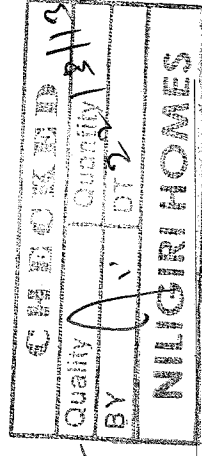 CHECKED
Quality Quantity
BY DT
NILIGIRI HOMES